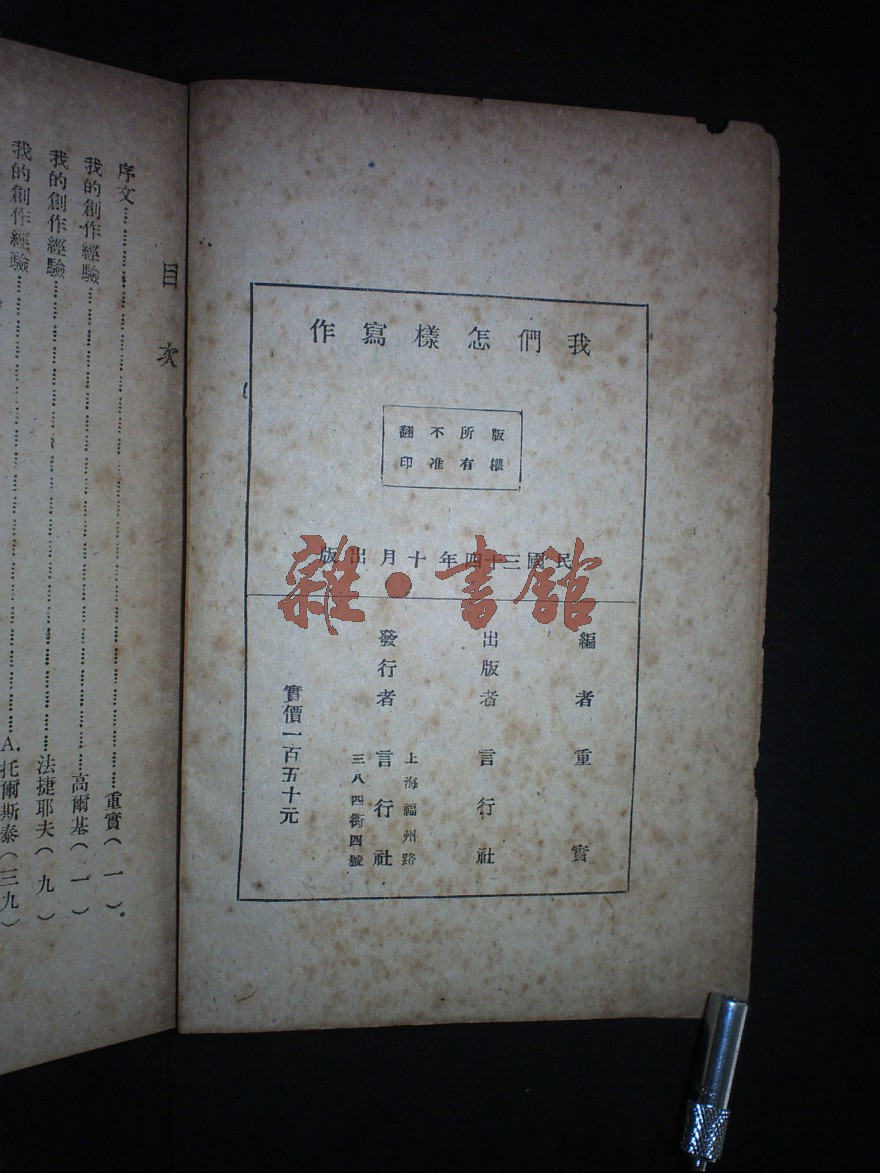 我們怎樣寫作
版權
所有
不准
翻印
民國三十四年十月出版
編者 重實
出版者 言行社
發行者 言行社
上海福州路
三八四街四號
實價一百五十元
雜·書館
目次
序文……重實(一)
我的創作經驗……高爾基(一)
我的創作經驗……法捷耶夫(九)
我的創作經驗……A.托爾斯泰(三九)